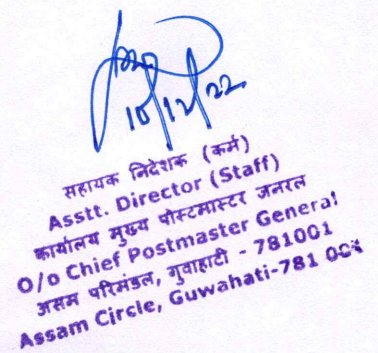 10/12/22
सहायक निदेशक (कर्म)
Asstt. Director (Staff)
कार्यालय मुख्य पोस्टमास्टर जनरल
O/o Chief Postmaster General
असम परिमंडल, गुवाहाटी - 781001
Assam Circle, Guwahati-781 001